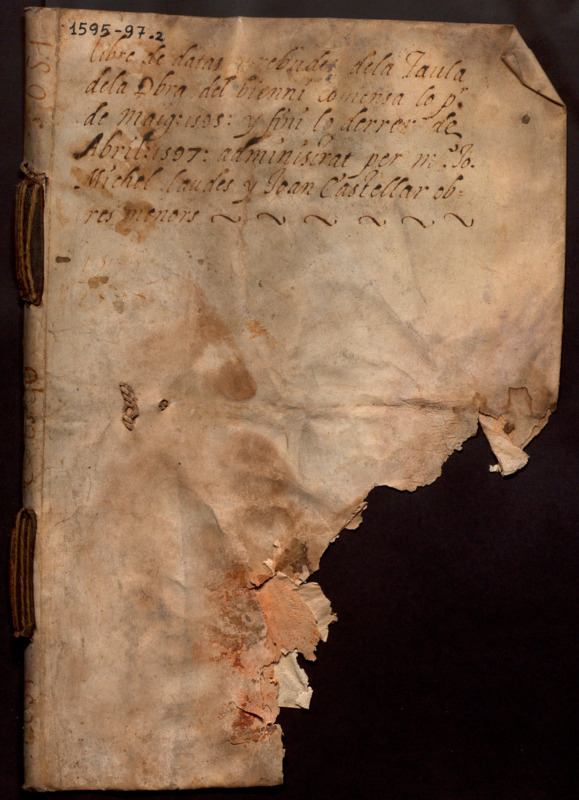 1595-97-2
libre de datas y rebudes dela Taula
dela Obra del bienni comensa lo p.r
de maig:1595: y fini lo derrer de
Abril:1597: administrat per m.o Jo.
Michel Laudes y Joan Castellar ob=
res menors